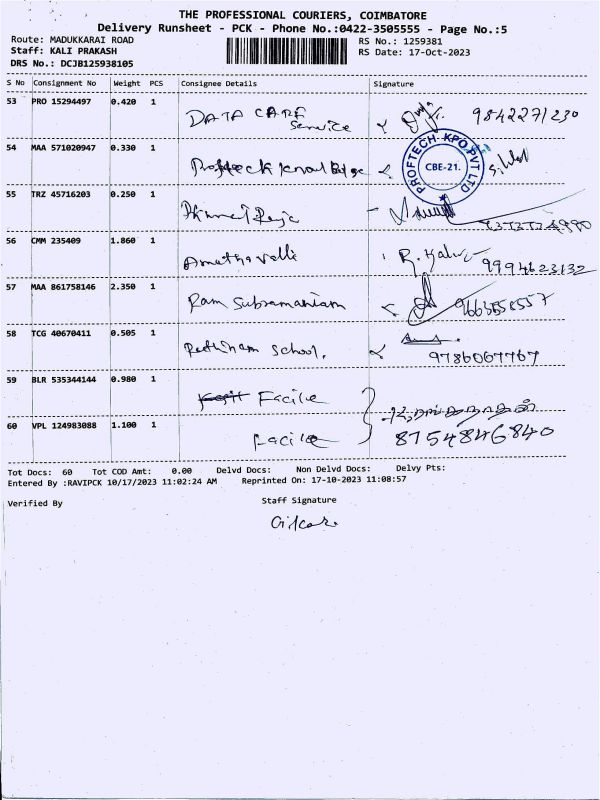 THE PROFESSIONAL COURIERS, COIMBATORE
Delivery Runsheet - PCK - Phone No.:0422-3505555 - Page No.:5
Route: MADUKKARAI ROAD RS No.: 1259381
Staff: KALI PRAKASH RS Date: 17-Oct-2023
DRS No.: DCJB125938105
S No Consignment No Weight PCS Consignee Details Signature
53 PRO 15294497 0.420 1 DATA CARE Service 9842271230
54 MAA 571020947 0.330 1
PROFTECH KPO PVT LTD
CBE-21.
55 TRZ 45716203 0.250 1
56 CMM 235409 1.860 1 9994623132
57 MAA 861758146 2.350 1 Ram Subramaniam
58 TCG 40670411 0.505 1 School. 9786067767
59 BLR 535344144 0.980 1 Facile
60 VPL 124983088 1.100 1 Facile 8754846840
Tot Docs: 60 Tot COD Amt: 0.00 Delvd Docs: Non Delvd Docs: Delvy Pts:
Entered By :RAVIPCK 10/17/2023 11:02:24 AM Reprinted On: 17-10-2023 11:08:57
Verified By Staff Signature